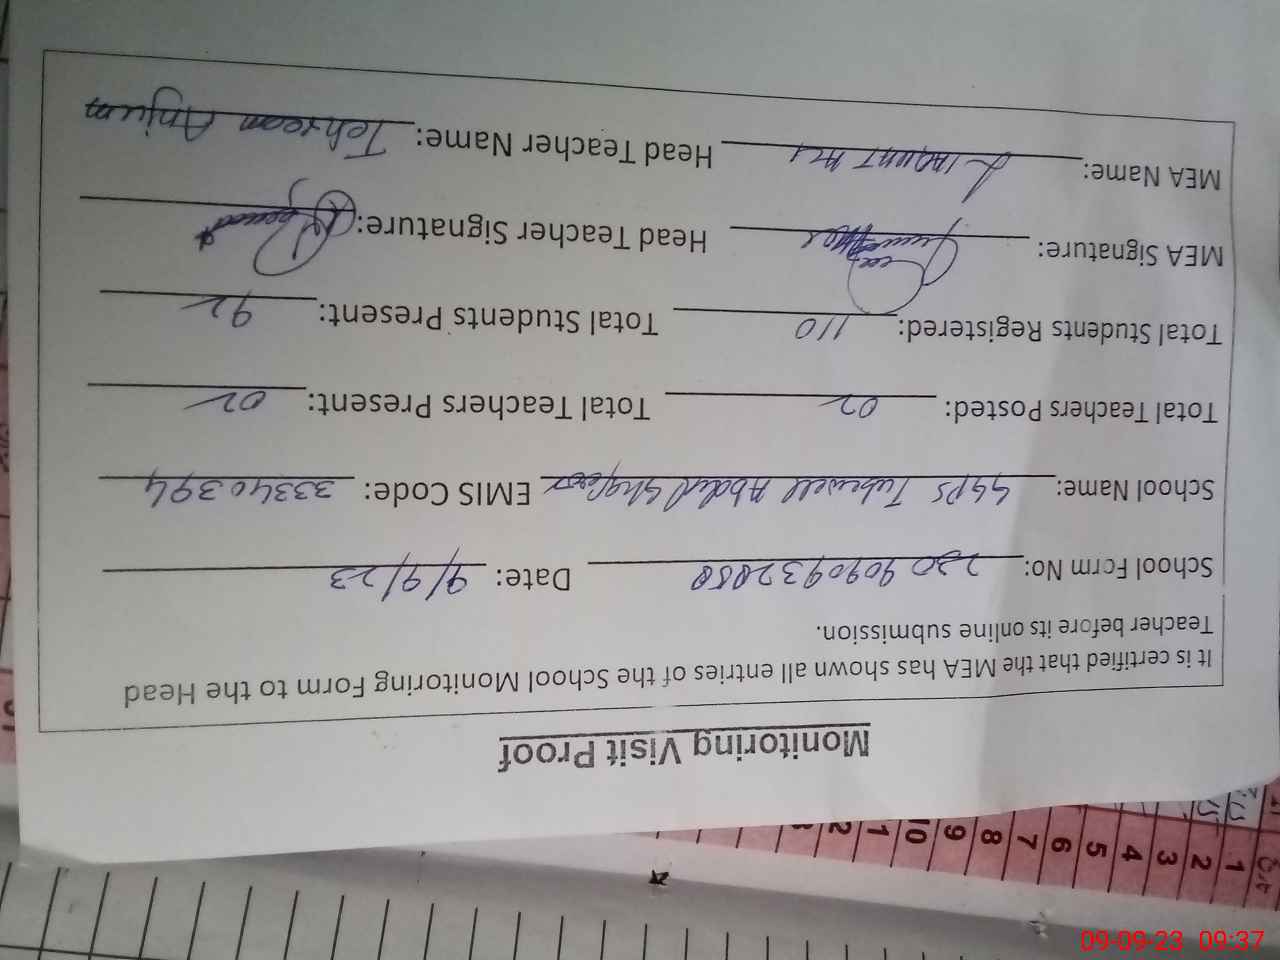 Monitoring Visit Proof
It is certified that the MEA has shown all entries of the School Monitoring Form to the Head
Teacher before its online submission.
School Form No: Date: 9/9/23
School Name: GGPS Tubewell Abdul Ghafoor EMIS Code: 33340394
Total Teachers Posted: 02 Total Teachers Present: 02
Total Students Registered: 110 Total Students Present: 92
MEA Signature: Head Teacher Signature:
MEA Name: Liaquat Ali Head Teacher Name: Tehreem Anjum
1 2 3 4 5 6 7 8 9 10 1 2 3
09-09-23 09:37